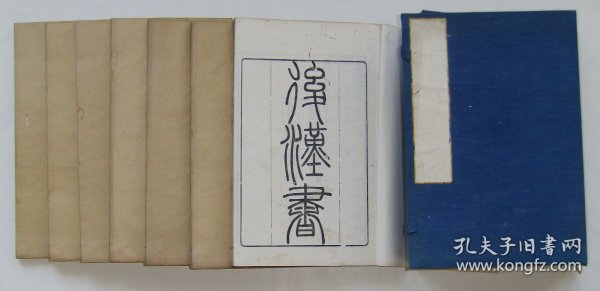 後漢書
孔夫子旧書网
www.kongfz.com